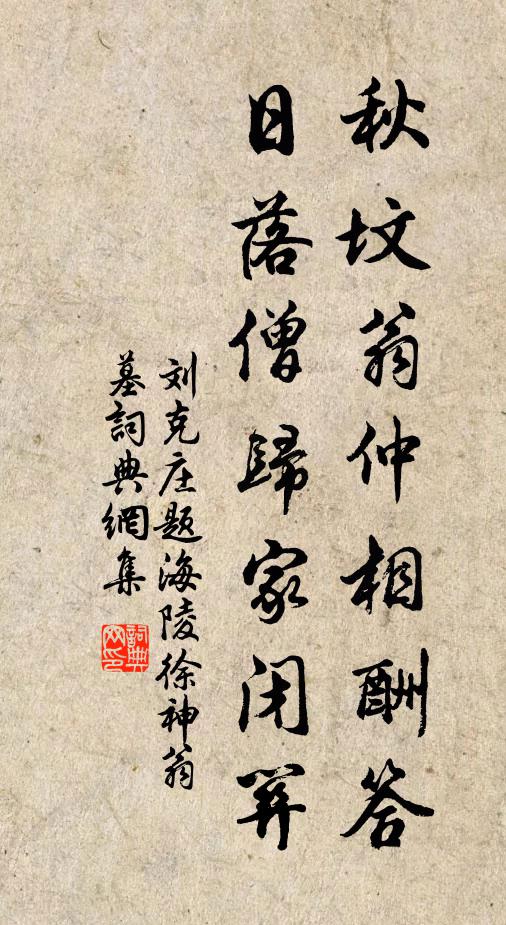 秋坟翁仲相酬答
日落僧歸家闭关
刘克庄题海陵徐神翁
墓詞典網集
詞典
网印